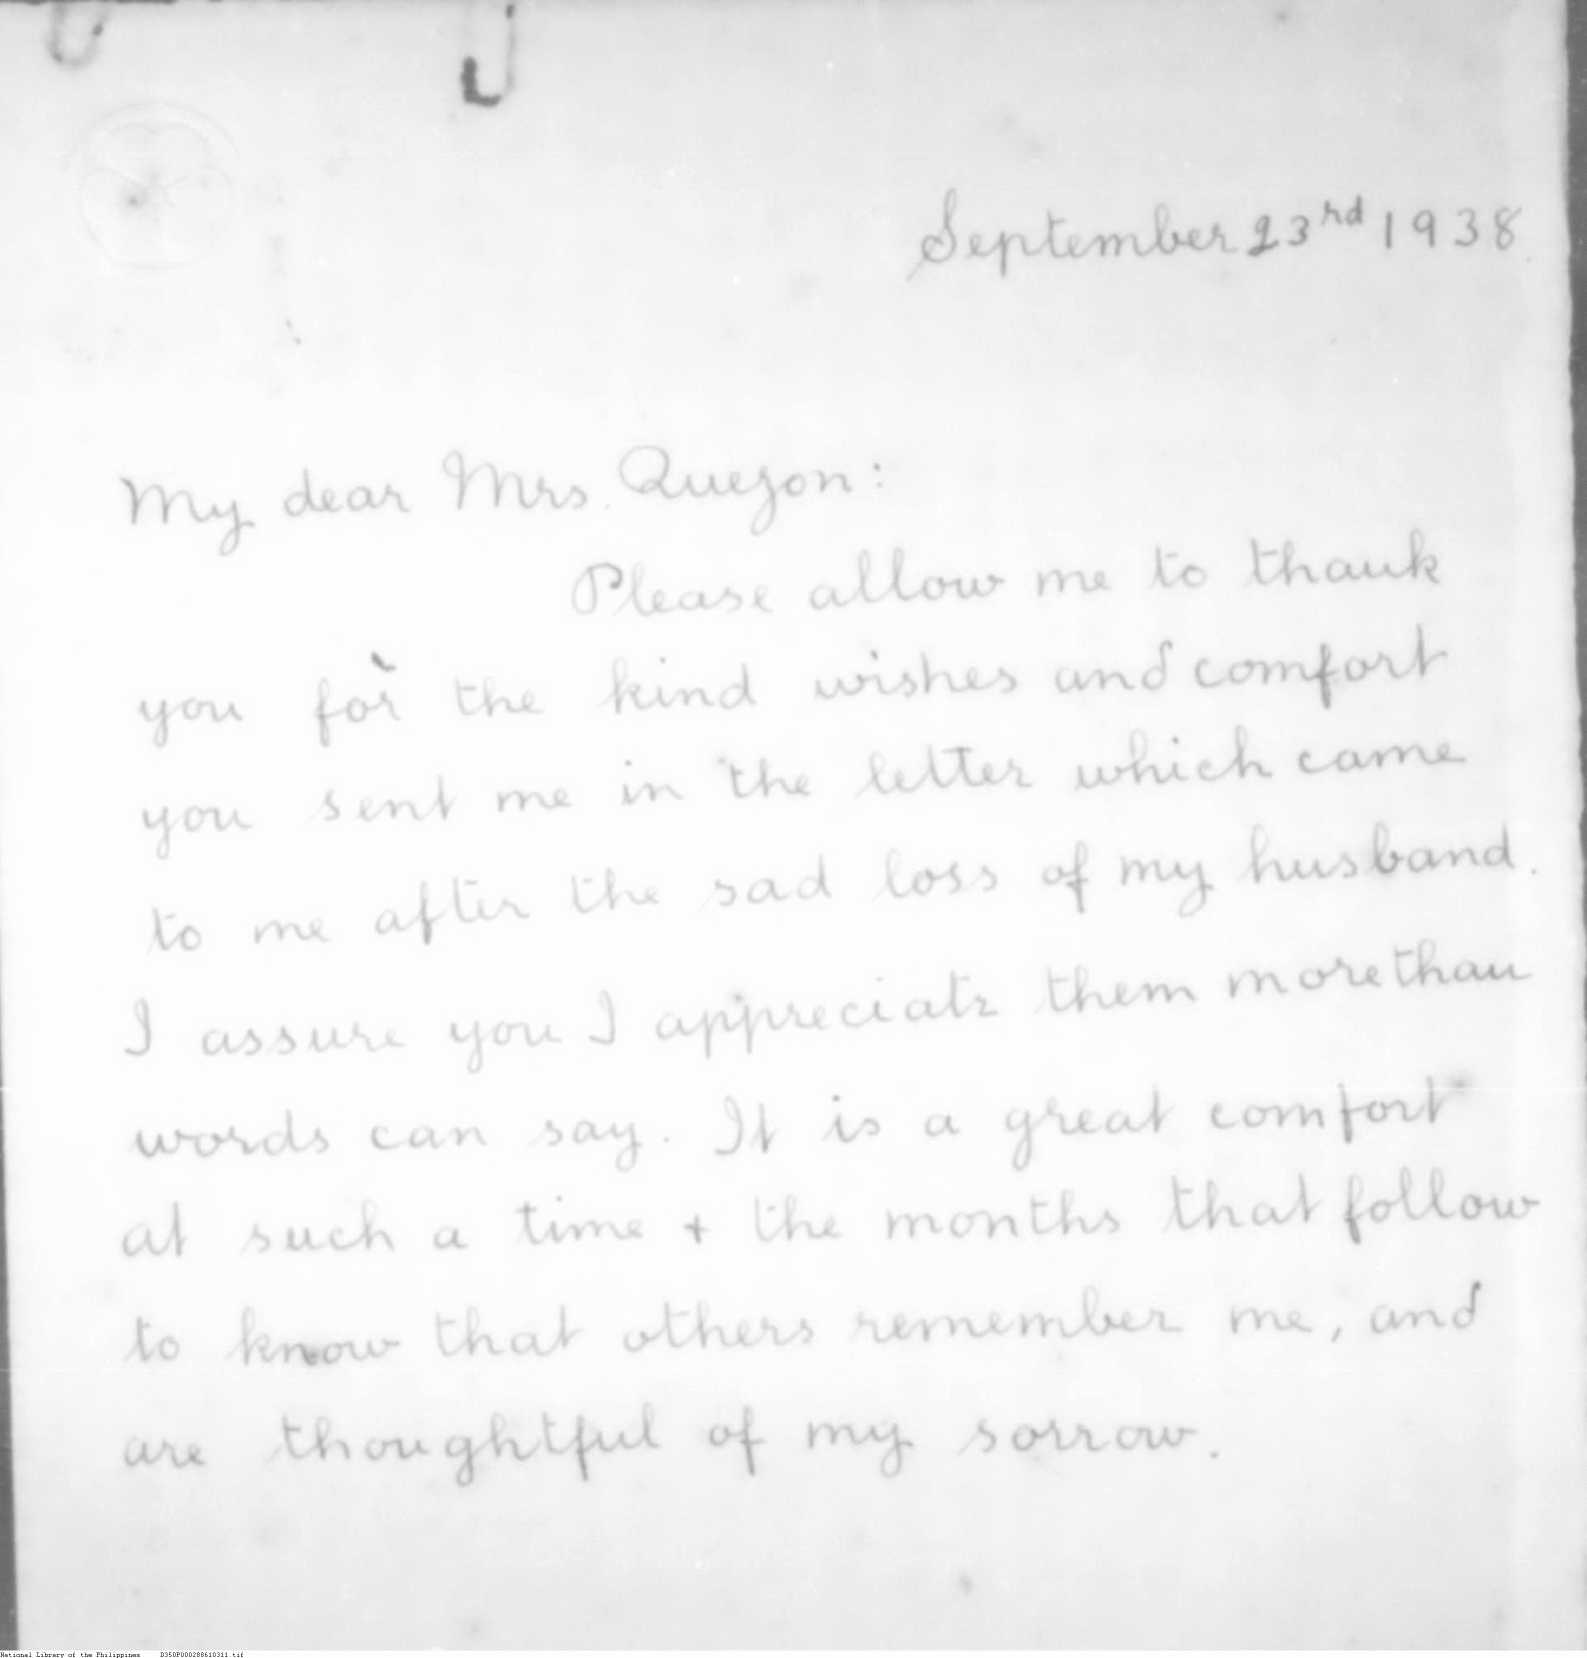 September 23rd 1938
My dear Mrs. Quezon:
Please allow me to thank
you for the kind wishes and comfort
you sent me in the letter which came
to me after the sad loss of my husband.
I assure you I appreciate them more than
words can say. It is a great comfort
at such a time + the months that follow
to know that others remember me, and
are thoughtful of my sorrow.
National Library of the Philippines D350P000288610311.tif